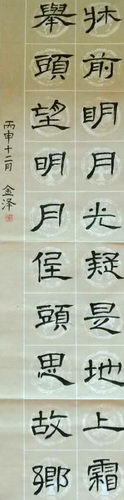 牀前明月光疑是地上霜
舉頭望明月低頭思故鄉
丙申十二月 金泽